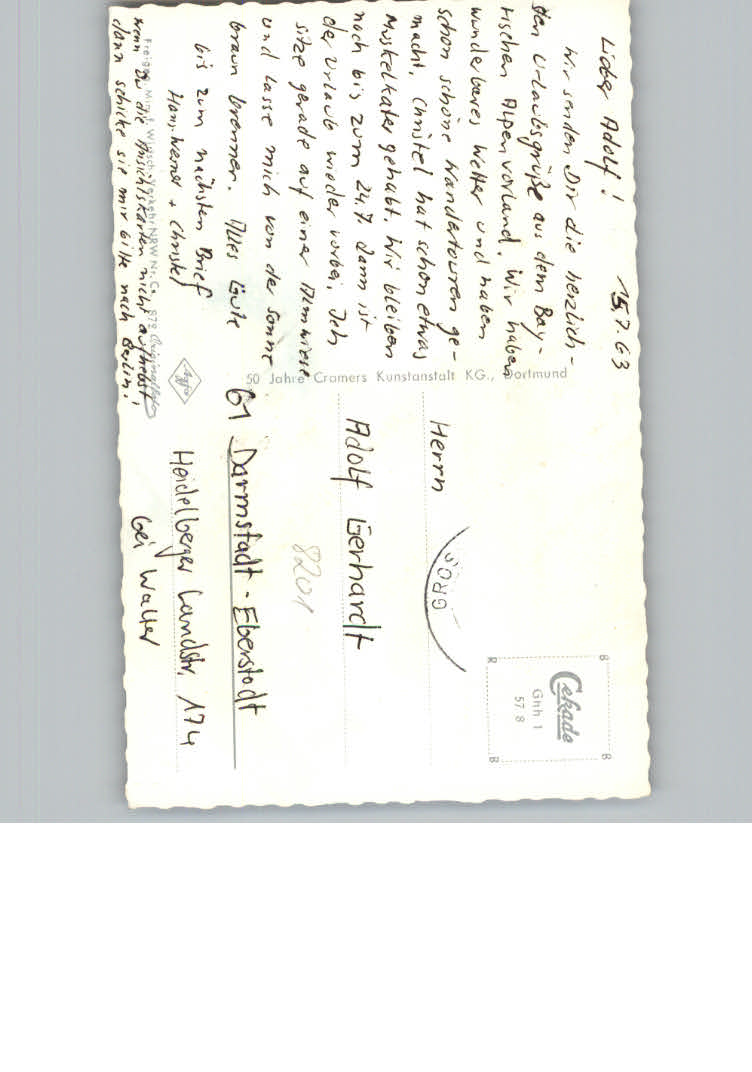 15.7.63
Lieber Adolf!
Wir senden Dir die herzlich-
den Urlaubsgrüße aus dem Bay-
rischen Alpenvorland. Wir haben
wunderbares Wetter und haben
schon schöne Wandertouren ge-
macht. Christel hat schon etwas
Muskelkater gehabt. Wir bleiben
noch bis zum 24.7 dann ist
der Urlaub wieder vorbei. Ich
sitze gerade auf einer Almwiese
und lasse mich von der Sonne
braun brennen. Alles Gute
bis zum nächsten Brief
+ Christel
wenn Du die Ansichtskarten nicht aufhebst,
dann schicke sie mir bitte nach Berlin!
Freigeg. Min. f. Wirtsch. Verkehr NRW Nr. Ca. 872
Agfa
50 Jahre Cramers Kunstanstalt KG., Dortmund
Cekade
Gnh 1
57 8
GROS
Herrn
Adolf Gerhardt
8201
61 Darmstadt-Eberstadt
Heidelberger Landstr. 174
bei Walter